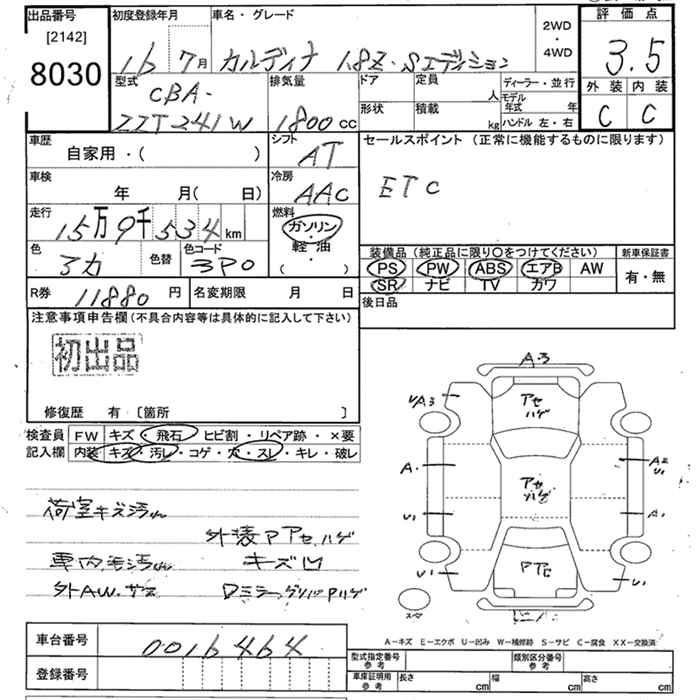 出品番号
[2142]
8030
初度登録年月
16 7月
車名・グレード
カルディナ 1.8Z・Sエディション
2WD
・
4WD
評価点
3.5
外装 内装
C C
型式
CBA-
ZZT241W
排気量
1800cc
ドア
形状
定員 人
積載 kg
ディーラー・並行
モデル年式 年
ハンドル 左・右
車歴
自家用・( )
シフト
AT
セールスポイント (正常に機能するものに限ります)
ETC
車検
年 月( 日)
冷房
AAC
走行
15万9千534km
燃料
ガソリン
軽・油
( ・ )
色
アカ
色替
色コード
3P0
装備品(純正品に限り○をつけてください)
PS PW ABS エアB AW
SR ナビ TV カワ
新車保証書
有・無
R券 11880円
名変期限 月 日
後日品
注意事項申告欄(不具合内容等は具体的に記入して下さい)
初出品
修復歴 有 [箇所 ]
検査員
記入欄
FW キズ・飛石・ヒビ割・リペア跡・×要
内装 キズ・汚レ・コゲ・穴・スレ・キレ・破レ
荷室キズ汚れ
外装アアセ.ハゲ
車内毛汚れ
キズ凹
外AW.サス
A.3
アセ
ハゲ
A3
A.
U1
U1
アセ
ハゲ
A2
U1
A1
U1
アセ
スペア
A-キズ E-エクボ U-凹み W-補修跡 S-サビ C-腐食 XX-交換済
車台番号
0016464
登録番号
型式指定番号
参考
類別区分番号
参考
車庫証明用
参考
長さ cm
幅 cm
高さ cm